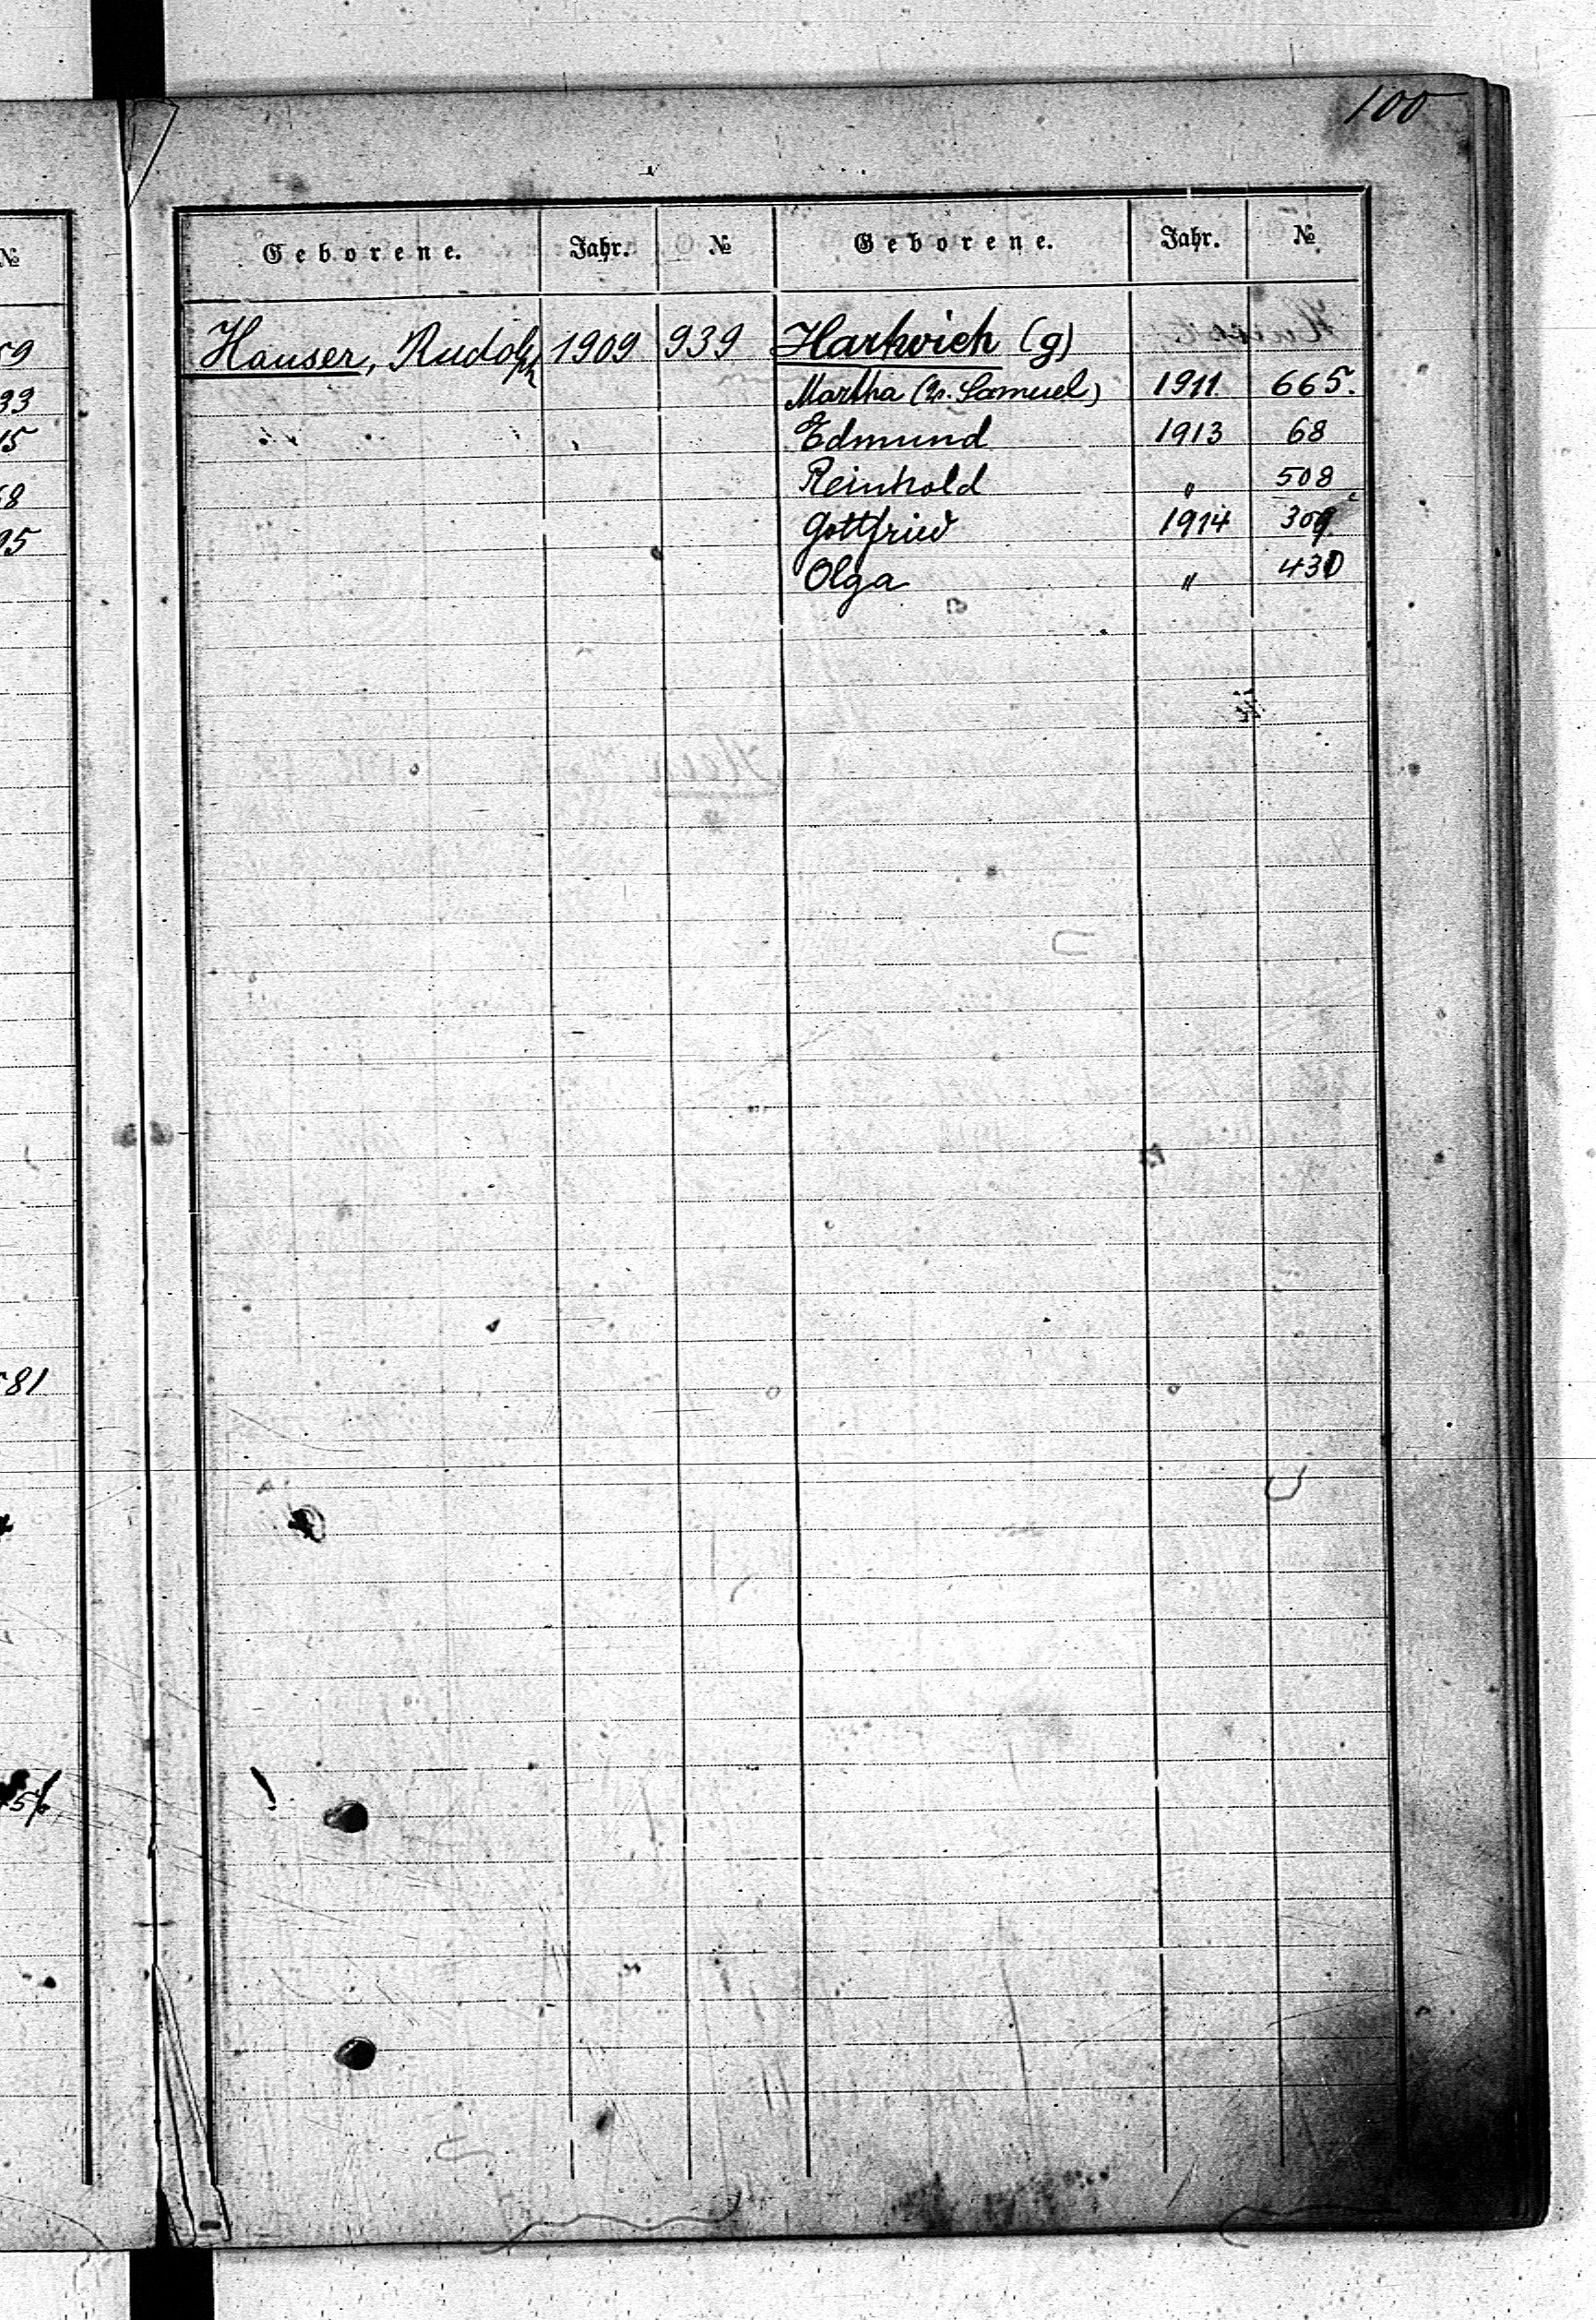 100
№ Geborene. Jahr. № Geborene. Jahr. №
Hauser, Rudolph 1909 939
Hartwich (g)
Martha (v. Samuel) 1911 665.
Edmund 1913 68
Reinhold " 508
Gottfried 1914 309.
Olga " 430
33
15
95
581